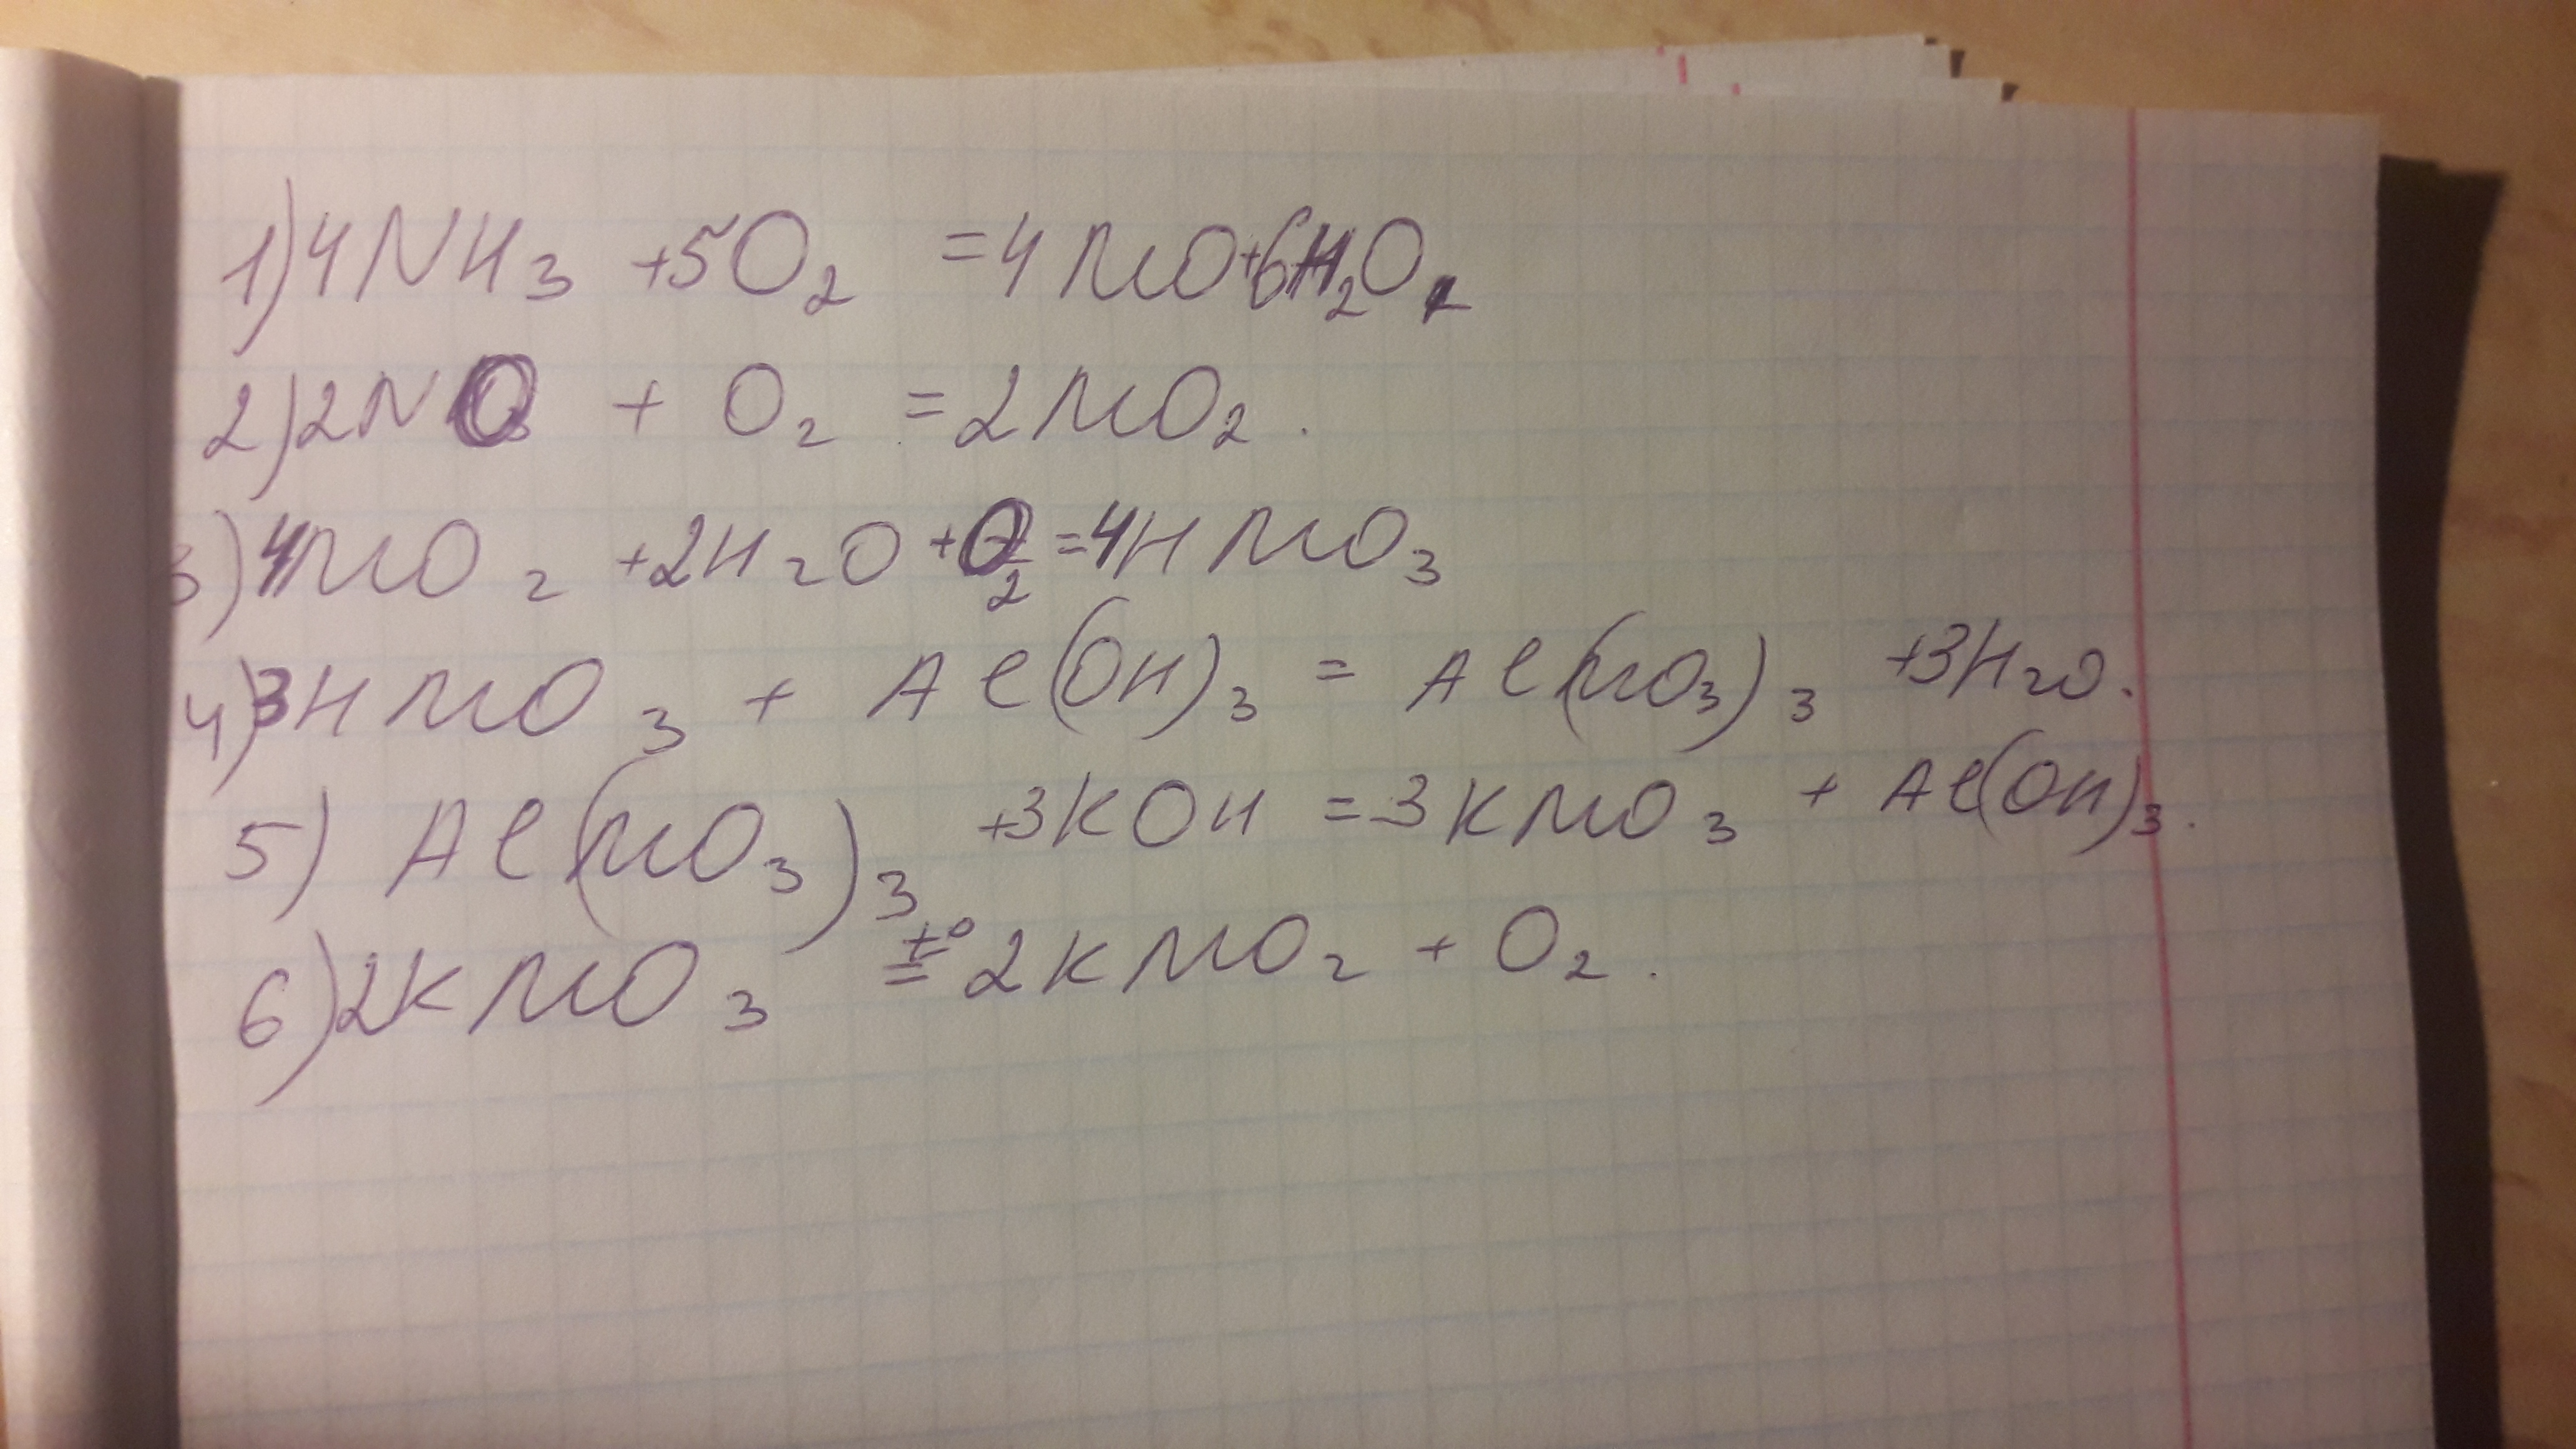 1) 4NH₃ + 5O₂ = 4NO + 6H₂O
2) 2NO + O₂ = 2NO₂.
3) 4NO₂ + 2H₂O + O₂ = 4HNO₃
4) 3HNO₃ + Al(OH)₃ = Al(NO₃)₃ + 3H₂O.
5) Al(NO₃)₃ + 3KOH = 3KNO₃ + Al(OH)₃.
6) 2KNO₃ =t° 2KNO₂ + O₂.